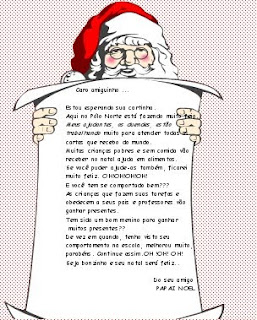 Caro amiguinho ...
Estou esperando sua cartinha.
Aqui no Pólo Norte está fazendo muito frio.
Meus ajudantes, os duendes, estão
trabalhando muito para atender todas as
cartas que recebo do mundo.
Muitas crianças pobres e sem comida vão
receber no natal ajuda em alimentos.
Se você puder ajude-os também, ficarei
muito feliz. OH!OH!OH!OH!
E você tem se comportado bem???
As crianças que fazem suas tarefas e
obedecem a seus pais e professores vão
ganhar presentes.
Tem sido um bom menino para ganhar
muitos presentes??
De vez em quando, tenho visto seu
comportamento na escola, melhorou muito,
parabéns. Continue assim.OH !OH! OH!
Seja bonzinho e seu natal será feliz...
Do seu amigo
PAPAI NOEL